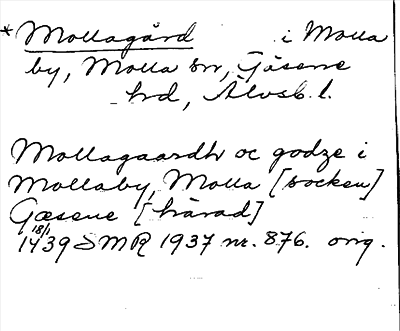 * Mollagård i Molla
by, Molla sn, Gäsene
hd, Älvsb. l.
Mollagaardh oc godze i
Mollaby, Molla [socken]
Gæsene [härad]
18/1
1439 SMR 1937 nr. 876. orig.